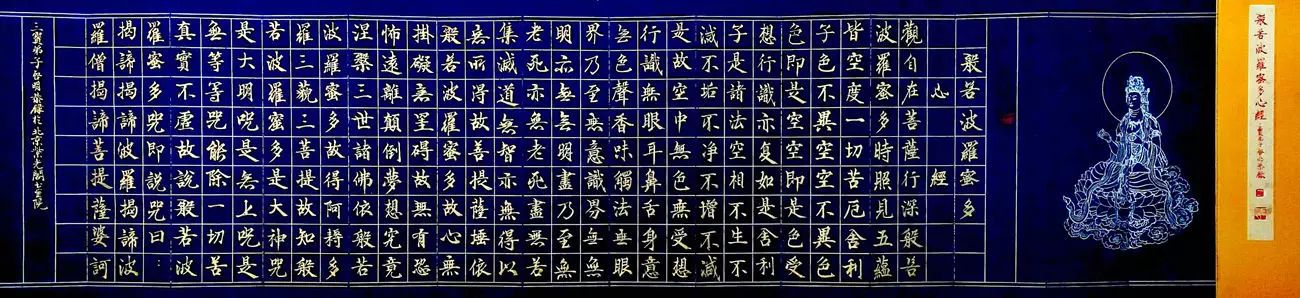 般若波羅蜜多心經
般若波羅蜜多
心經
觀自在菩薩行深般若
波羅蜜多時照見五蘊
皆空度一切苦厄舍利
子色不異空空不異色
色即是空空即是色受
想行識亦復如是舍利
子是諸法空相不生不
滅不垢不净不增不減
是故空中無色無受想
行識無眼耳鼻舌身意
無色聲香味觸法無眼
界乃至無意識界無無
明亦無無明盡乃至無
老死亦無老死盡無苦
集滅道無智亦無得以
無所得故菩提薩埵依
般若波羅蜜多故心無
掛礙無罣碍故無有恐
怖遠離顛倒夢想究竟
涅槃三世諸佛依般若
波羅蜜多故得阿耨多
羅三藐三菩提故知般
若波羅蜜多是大神咒
是大明咒是無上咒是
無等等咒能除一切苦
真實不虛故說般若波
羅蜜多咒即說咒曰：
揭諦揭諦波羅揭諦波
羅僧揭諦菩提薩婆訶
三寶弟子啟明恭錄於北京紫光閣書畫院